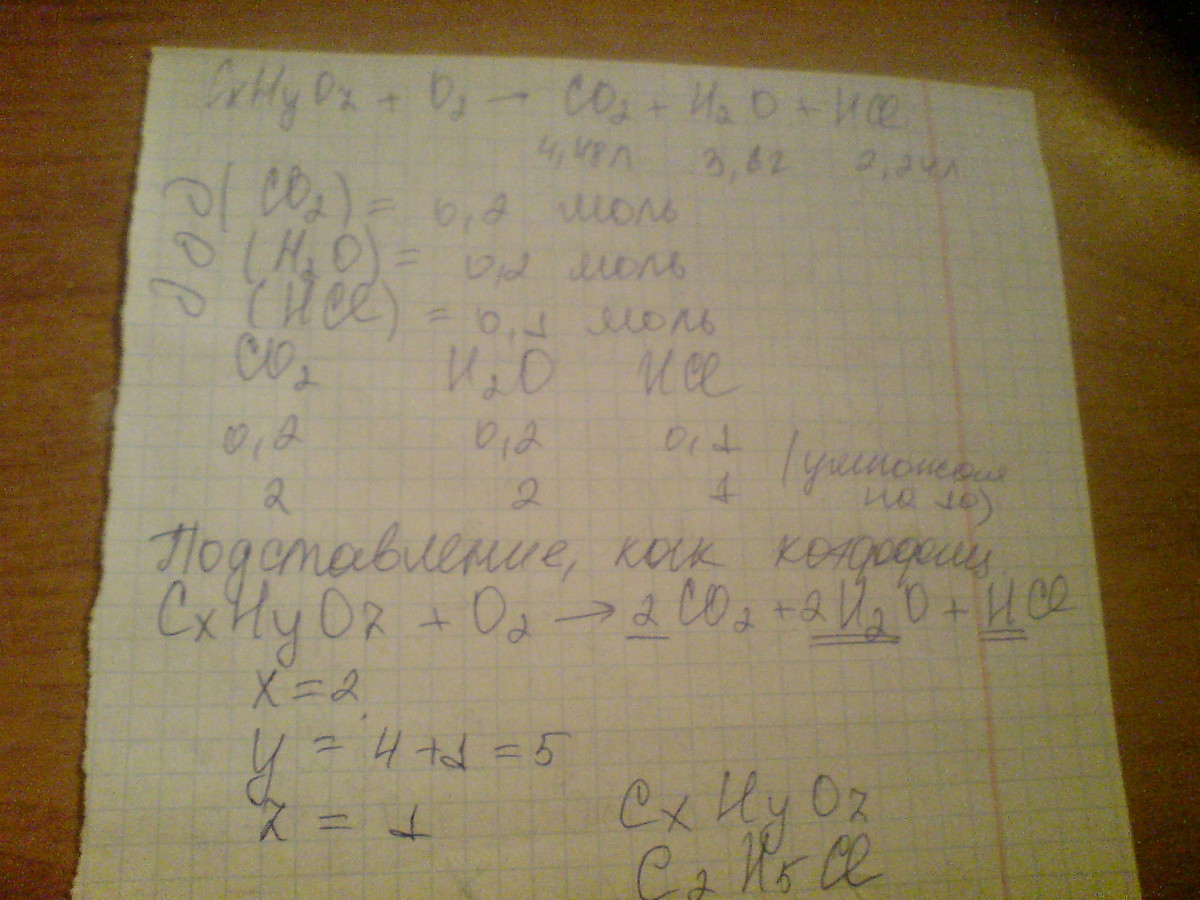 CxHyOz + O2 → CO2 + H2O + HCl
4,48л 3,6г 2,24л
υ(CO2) = 0,2 моль
υ(H2O) = 0,2 моль
υ(HCl) = 0,1 моль
CO2 H2O HCl
0,2 0,2 0,1 (умножаем
2 2 1 на 10)
Подставление, как
CxHyOz + O2 → 2CO2 + 2H2O + HCl
x = 2
y = 4 + 1 = 5
z = 1
CxHyOz
C2H5Cl